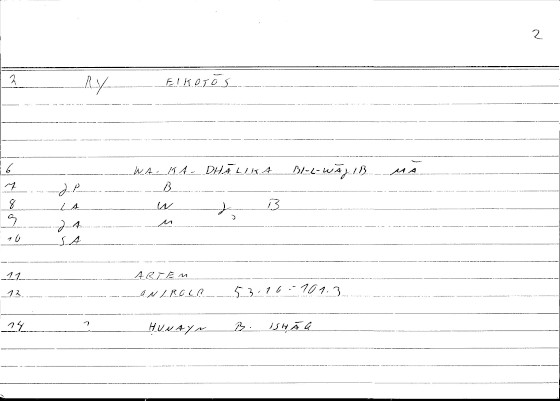 2
2 RY EIKOTŌS
6 WA-KA-DHĀLIKA BI-L-WĀJIB MĀ
7 JP B
8 LA W J B
9 JA M ?
10 SA
11 ARTEM
12 ONIROCR 53.16-101.3
14 ? ḤUNAYN B. ISḤĀQ